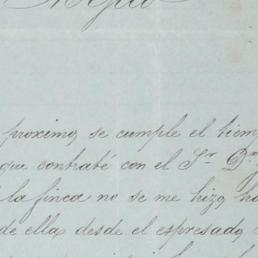 proximo, se cumple el tiem
que contraté con el Sr. D
la finca no se me hizo, h
de ellas desde el espresado